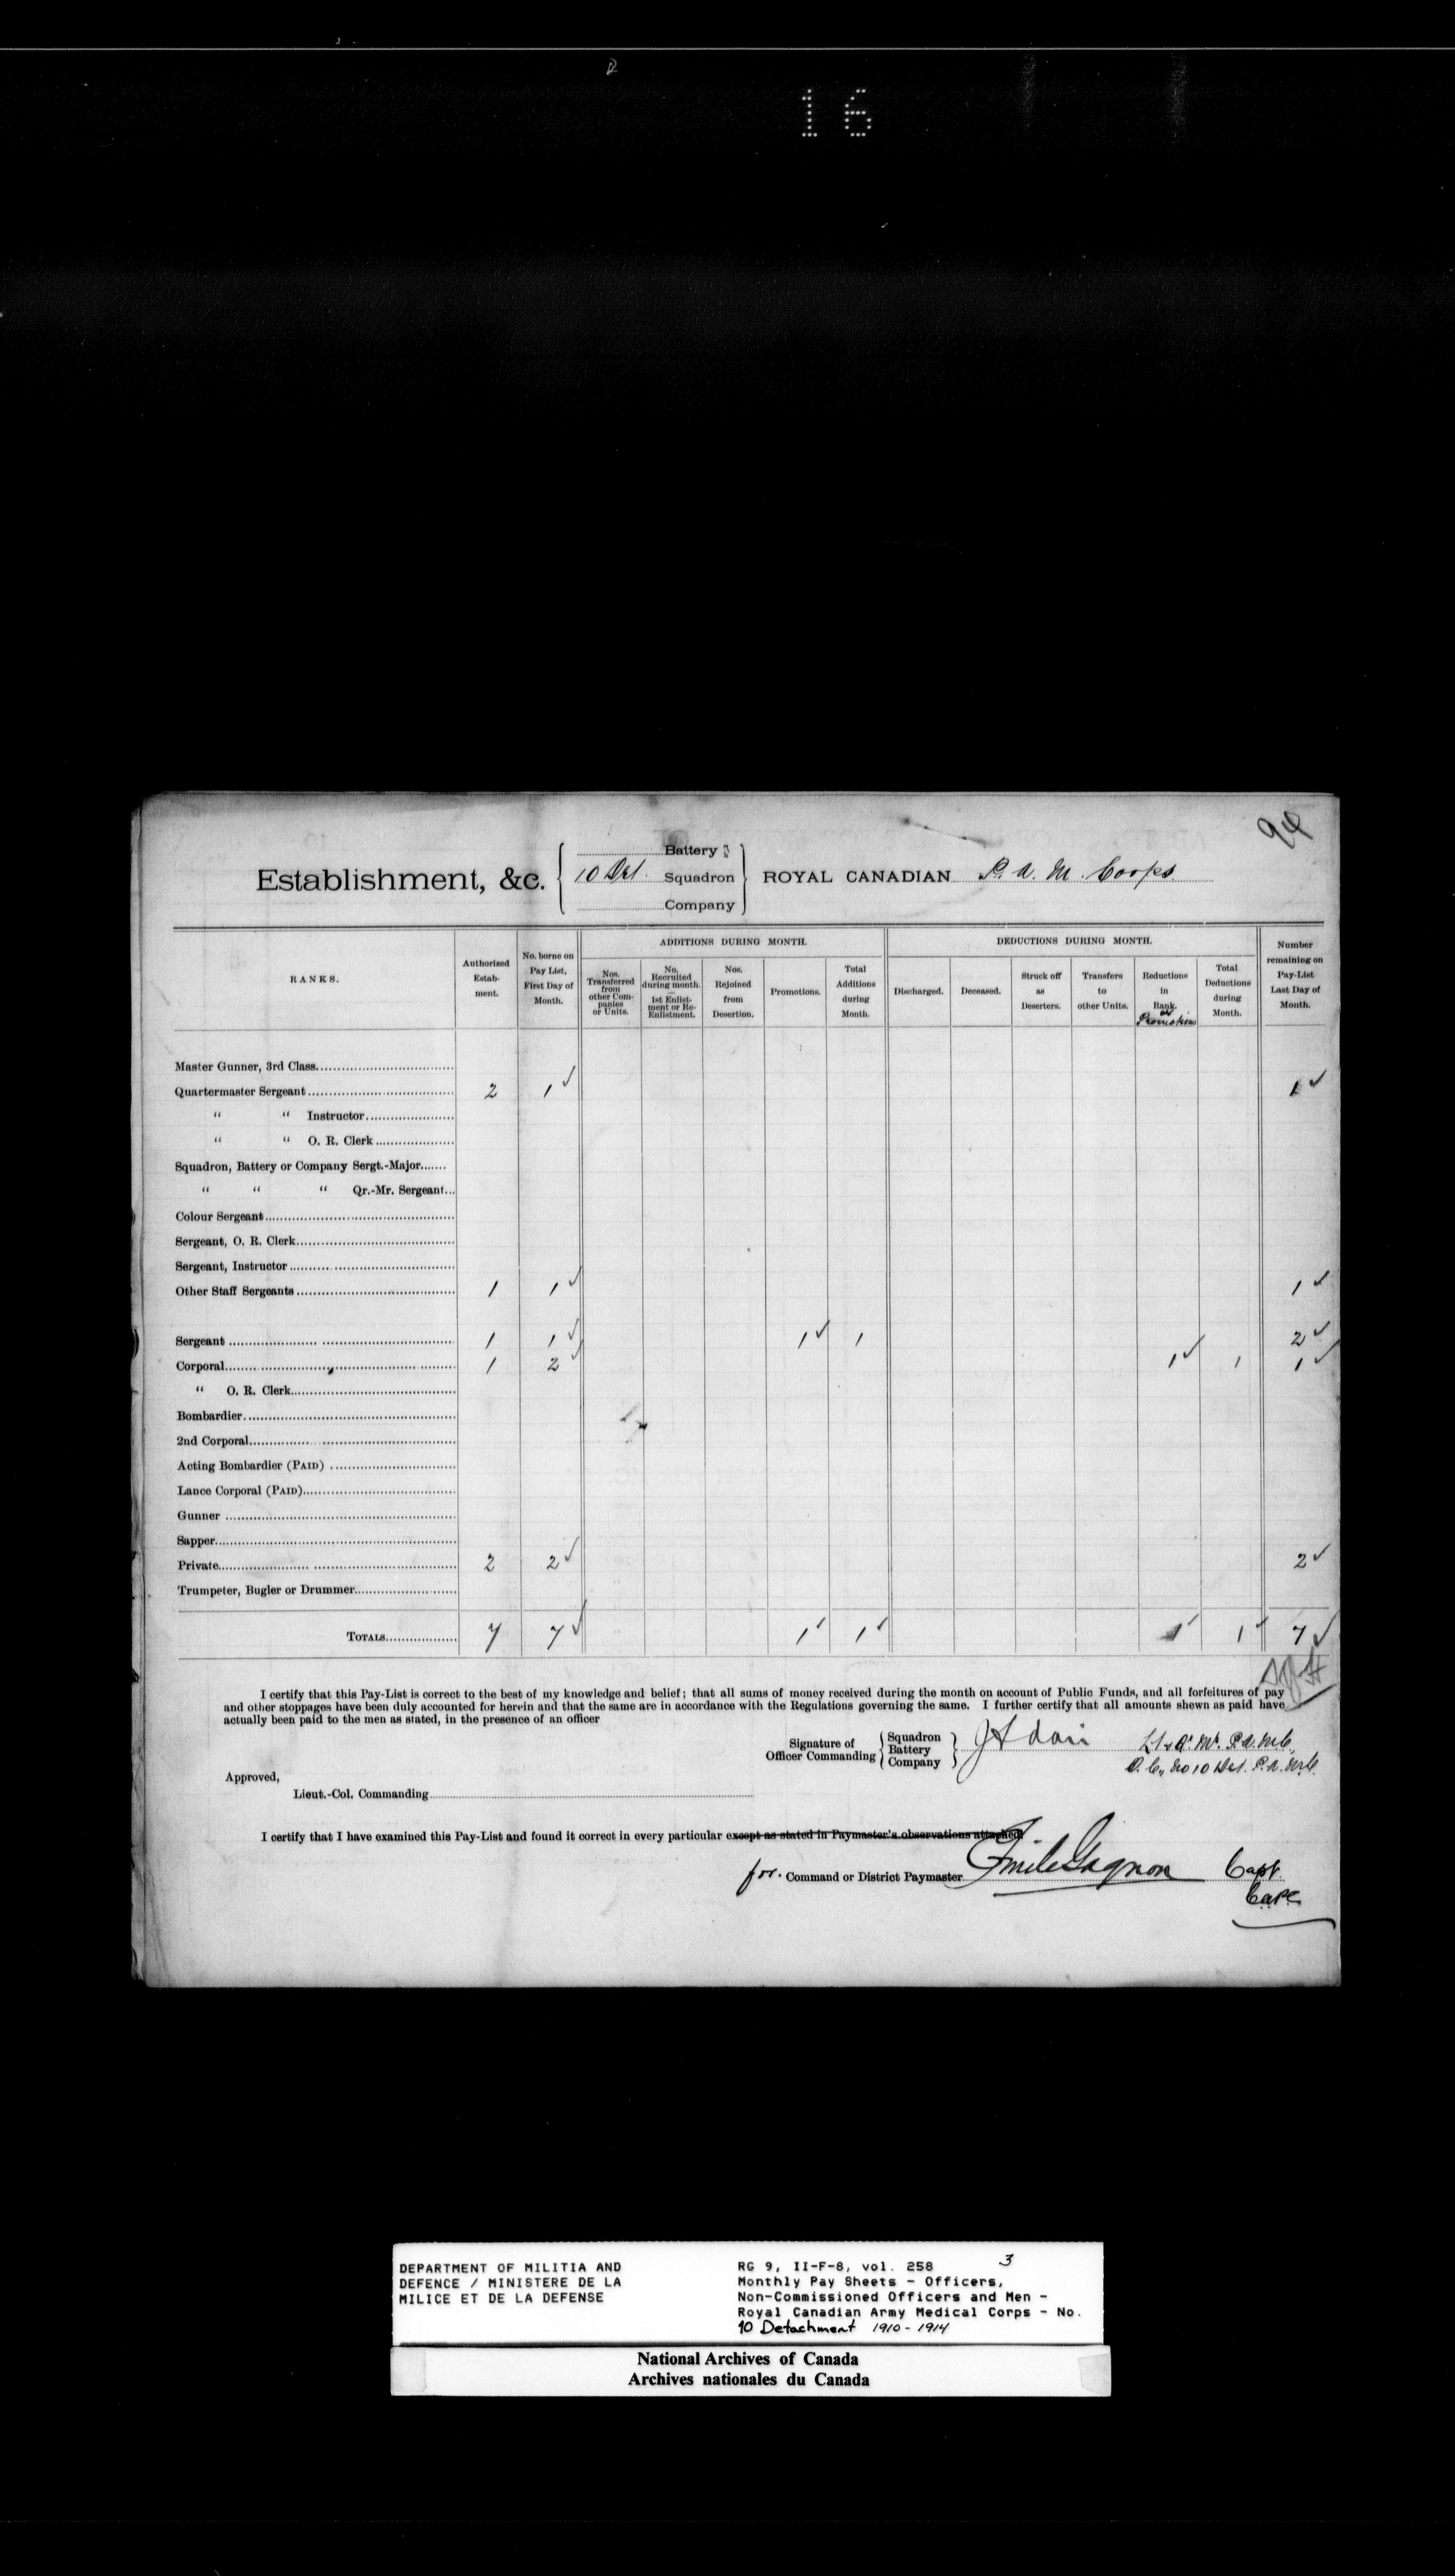 16
94
Establishment, &c.
Battery
10 Det. Squadron
Company
ROYAL CANADIAN P. A. M. Corps
RANKS.
Authorized Estab-ment.
No. borne on Pay List, First Day of Month.
ADDITIONS DURING MONTH.
Nos. Transferred from other Com-panies or Units.
No. Recruited during month. — 1st Enlist-ment or Re-Enlistment.
Nos. Rejoined from Desertion.
Promotions.
Total Additions during Month.
DEDUCTIONS DURING MONTH.
Discharged.
Deceased.
Struck off as Deserters.
Transfers to other Units.
Reductions in Rank. or Promotions
Total Deductions during Month.
Number remaining on Pay-List Last Day of Month.
Master Gunner, 3rd Class
Quartermaster Sergeant 2 1 ✓ 1 ✓
" " Instructor
" " O. R. Clerk
Squadron, Battery or Company Sergt.-Major
" " " Qr.-Mr. Sergeant
Colour Sergeant
Sergeant, O. R. Clerk
Sergeant, Instructor
Other Staff Sergeants 1 1 ✓ 1 ✓
Sergeant 1 1 ✓ 1 ✓ 1 2 ✓
Corporal 1 2 ✓ 1 ✓ 1 1 ✓
" O. R. Clerk
Bombardier
2nd Corporal
Acting Bombardier (PAID)
Lance Corporal (PAID)
Gunner
Sapper
Private 2 2 ✓ 2 ✓
Trumpeter, Bugler or Drummer
TOTALS 7 7 ✓ 1 ✓ 1 ✓ 1 ✓ 1 ✓ 7 ✓
I certify that this Pay-List is correct to the best of my knowledge and belief; that all sums of money received during the month on account of Public Funds, and all forfeitures of pay
and other stoppages have been duly accounted for herein and that the same are in accordance with the Regulations governing the same. I further certify that all amounts shewn as paid have
actually been paid to the men as stated, in the presence of an officer
Signature of Officer Commanding
Squadron
Battery
Company
Lt & Q. Mr. P.A.M.C.
O. C., No 10 Det. P.A.M.C.
Approved,
Lieut.-Col. Commanding
I certify that I have examined this Pay-List and found it correct in every particular except as stated in Paymaster's observations attached
for. Command or District Paymaster Emile Gagnon Capt.
DEPARTMENT OF MILITIA AND
DEFENCE / MINISTERE DE LA
MILICE ET DE LA DEFENSE
RG 9, II-F-8, vol. 258 3
Monthly Pay Sheets - Officers,
Non-Commissioned Officers and Men -
Royal Canadian Army Medical Corps - No.
10 Detachment 1910-1914
National Archives of Canada
Archives nationales du Canada